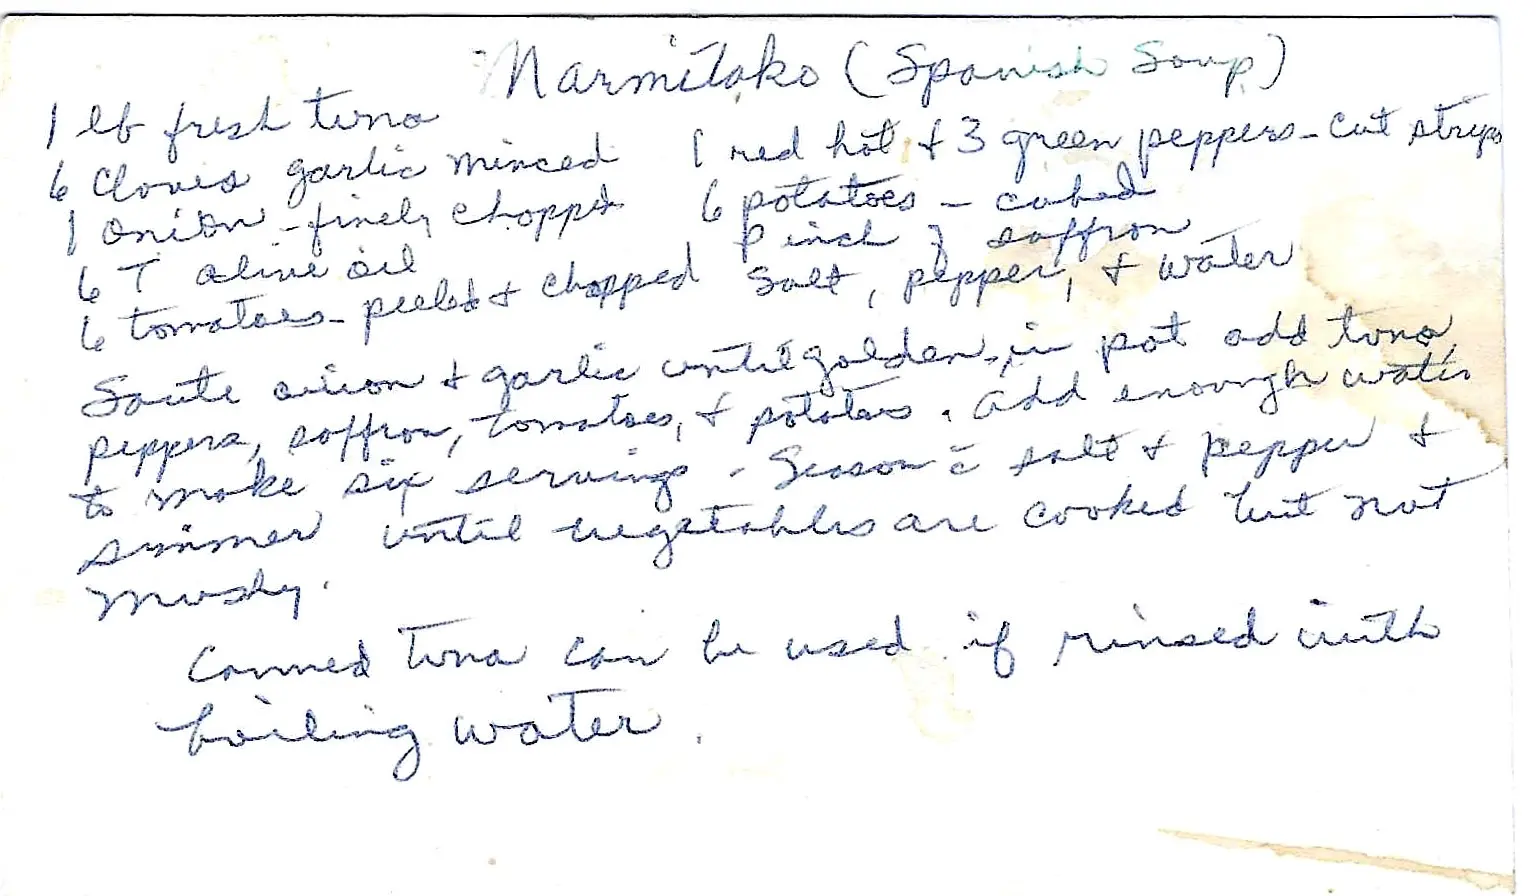 Marmitako (Spanish Soup)
1 lb fresh tuna
6 cloves garlic minced
1 onion - finely chopped
6 T olive oil
6 tomatoes - peeled & chopped
1 red hot & 3 green peppers - cut strips
6 potatoes - cubed
Pinch of saffron
Salt, pepper, & water
Saute onion & garlic until golden, in pot add tuna,
peppers, saffron, tomatoes, & potatoes. Add enough water
to make six servings - Season c̄ salt & pepper &
simmer until vegetables are cooked but not
mushy.
Canned tuna can be used if rinsed with
boiling water.